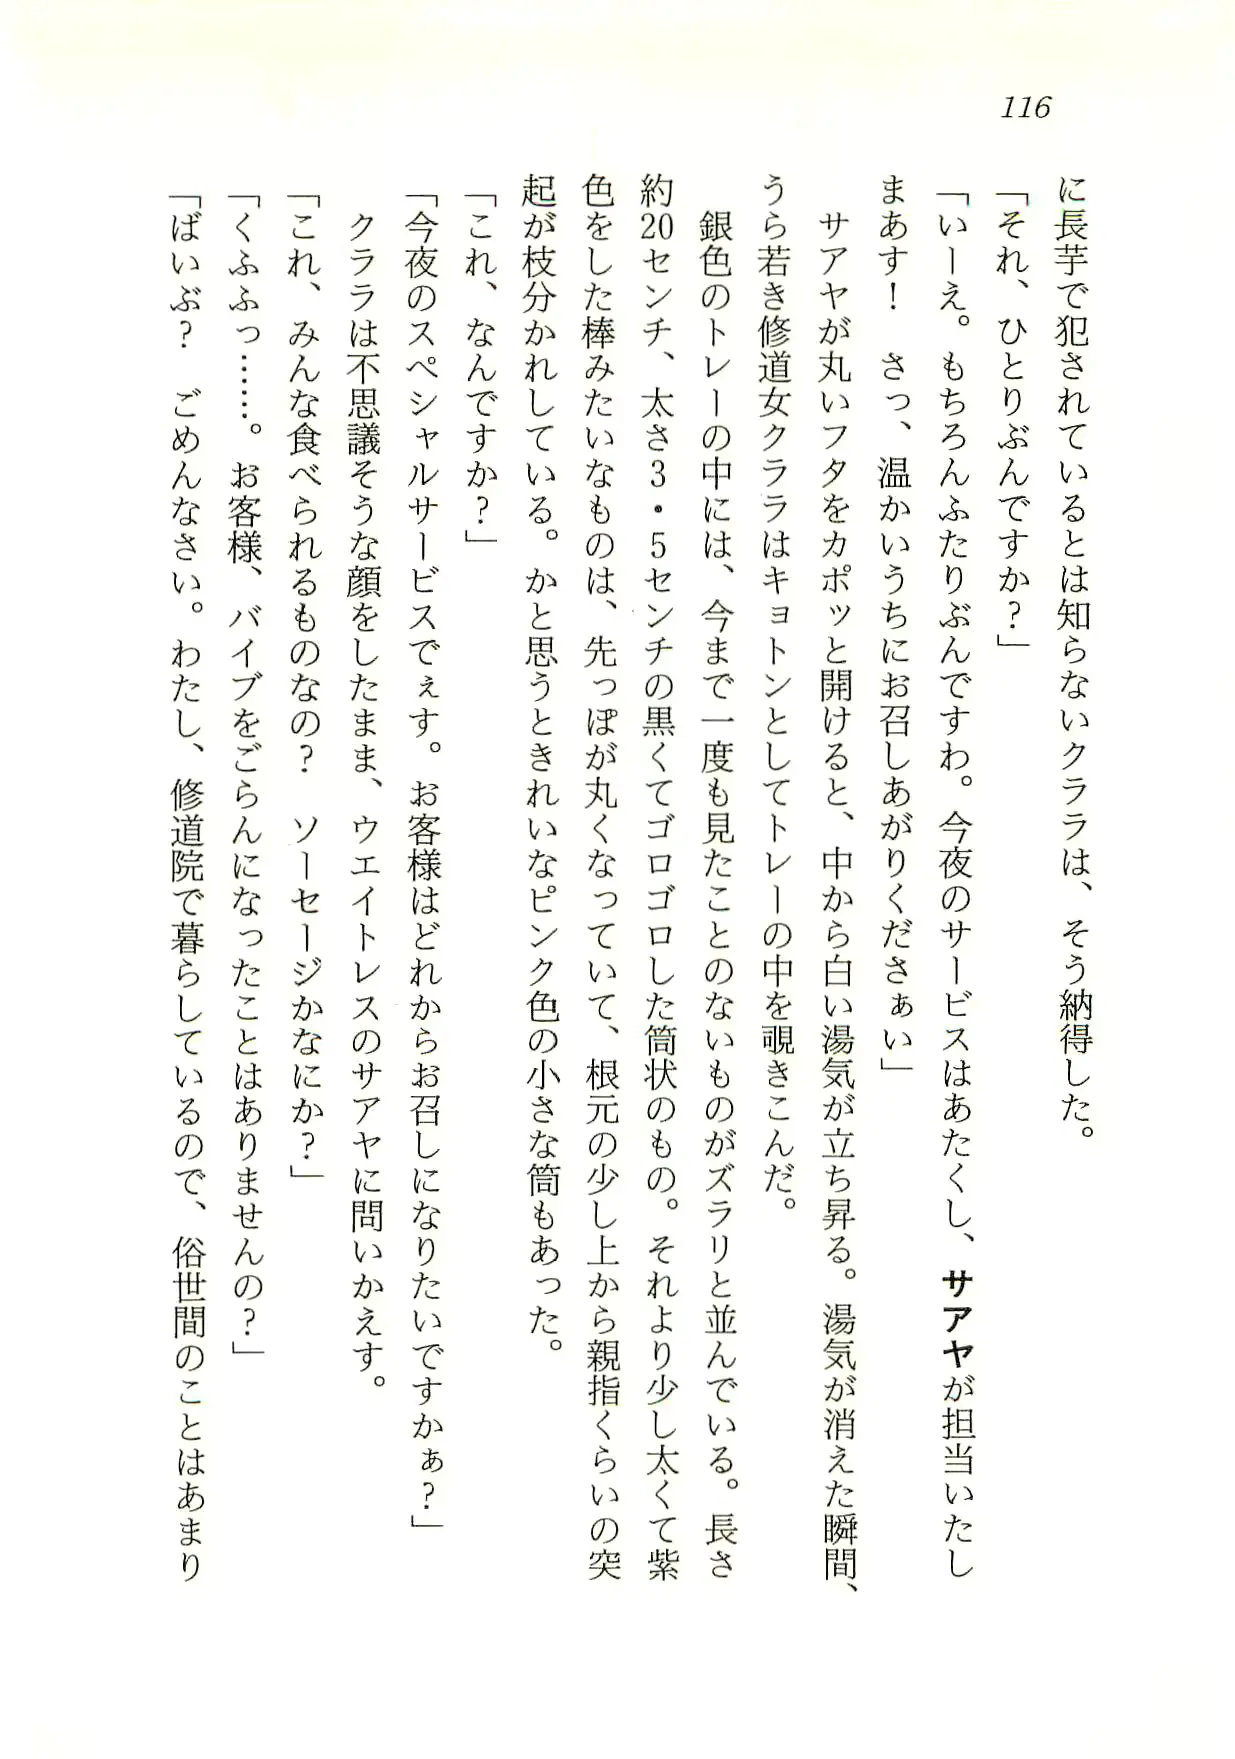 116
に長芋で犯されているとは知らないクララは、そう納得した。
「それ、ひとりぶんですか?」
「いーえ。もちろんふたりぶんですわ。今夜のサービスはあたくし、サアヤが担当いたし
まあす! さっ、温かいうちにお召しあがりくださぁい」
サアヤが丸いフタをカポッと開けると、中から白い湯気が立ち昇る。湯気が消えた瞬間、
うら若き修道女クララはキョトンとしてトレーの中を覗きこんだ。
銀色のトレーの中には、今まで一度も見たことのないものがズラリと並んでいる。長さ
約20センチ、太さ3・5センチの黒くてゴロゴロした筒状のもの。それより少し太くて紫
色をした棒みたいなものは、先っぽが丸くなっていて、根元の少し上から親指くらいの突
起が枝分かれしている。かと思うときれいなピンク色の小さな筒もあった。
「これ、なんですか?」
「今夜のスペシャルサービスでぇす。お客様はどれからお召しになりたいですかぁ?」
クララは不思議そうな顔をしたまま、ウエイトレスのサアヤに問いかえす。
「これ、みんな食べられるものなの? ソーセージかなにか?」
「くふふっ……。お客様、バイブをごらんになったことはありませんの?」
「ばいぶ? ごめんなさい。わたし、修道院で暮らしているので、俗世間のことはあまり